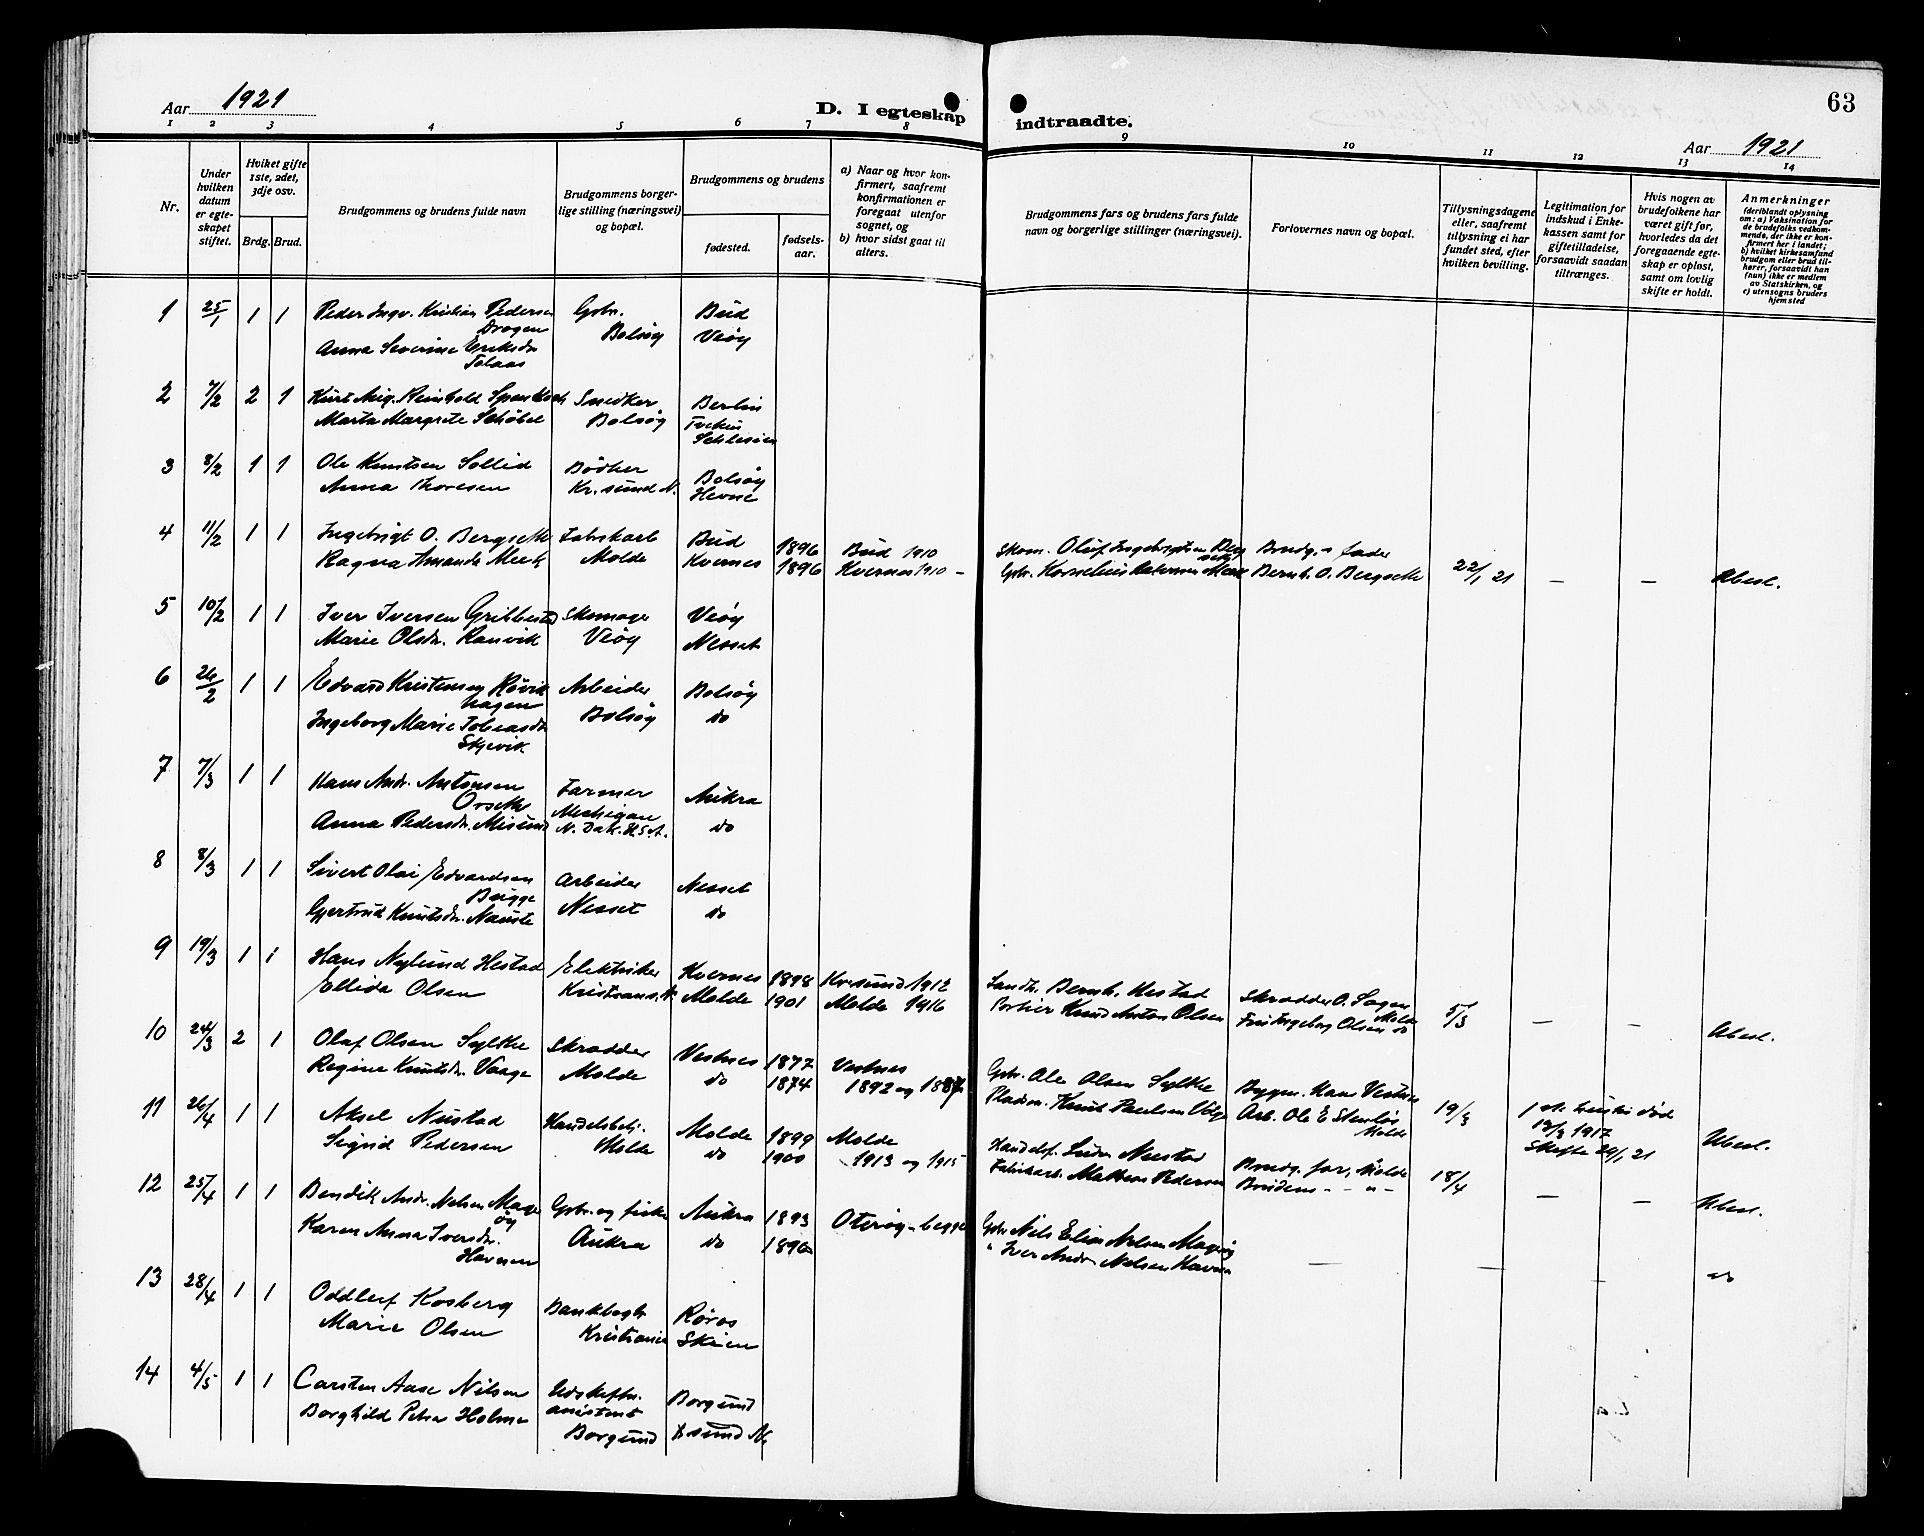 Aar 1921
D. I egteskap indtraadte.
63
Aar 1921
1 2 3 4 5 6 7 8 9 10 11 12 13 14
Nr.
Under hvilken datum er egteskapet stiftet.
Hviket gifte 1ste, 2det, 3dje osv.
Brdg. Brud.
Brudgommens og brudens fulde navn
Brudgommens borgerlige stilling (næringsvei) og bopæl.
Brudgommens og brudens
fødested.
fødselsaar.
a) Naar og hvor konfirmert, saafremt konfirmationen er foregaat utenfor sognet, og
b) hvor sidst gaat til alters.
Brudgommens fars og brudens fars fulde navn og borgerlige stillinger (næringsvei).
Forlovernes navn og bopæl.
Tillysningsdagene eller, saafremt tillysning ei har fundet sted, efter hvilken bevilling.
Legitimation for indskud i Enkekassen samt for giftetilladelse, forsaavidt saadan tiltrænges.
Hvis nogen av brudefolkene har været gift før, hvorledes da det foregaaende egteskap er opløst, samt om lovlig skifte er holdt.
Anmerkninger
(deriblandt oplysning om: a) Vaksination for de brudefolks vedkommende, der ikke er konfirmert her i landet; b) hvilket kirkesamfund brudgom eller brud tilhører, forsaavidt han (hun) ikke er medlem av Statskirken, og c) utensogns bruders hjemsted
1 25/1 1 1 Peder Ingv. Kristian Pedersen Gbr. Bud
Drogen Bolsøy Veøy
Anna Severine Eriksdr
Tolaas
2 7/2 2 1 Kurt Aug. Reinhold Snedker Berlin
Marta Margrete Schöbel Bolsøy
Schlesien
3 8/2 1 1 Ole Knutsen Sollid Bødker Bolsøy
Anna Thoresen Kr.sund N. Hevne
4 11/2 1 1 Ingebrigt O. Bergseth Bud 1896 Bud 1910 Skom. Oluf Ingebrigtsen Bergseth Brudg.s fader
Ragna Amanda Meek Molde Kvernes 1896 Kvernes 1910 - Gbr. Kornelius Bernh. O. Bergseth 22/1 21 — — Ubesl.
5 10/2 1 1 Iver Iversen Gribbestad Skomager Veøy
Marie Olsdr. Ranvik Veøy Nesset
6 26/2 1 1 Edvard Kristensen Røvik Arbeider Bolsøy
hagen Bolsøy do
Ingeborg Marie Tobiasdr
Skjevik
7 7/3 1 1 Hans Andr. Antonsen Farmer Aukra
Orseth Mechigan
Anna Pedersdr. Misund N. Dak. U.S.A. do
8 8/3 1 1 Sivert Olai Edvardsen Arbeider Nesset
Bugge Nesset do
Gjertrud Knutsdr. Nauste
9 19/3 1 1 Hans Nylund Hestad Elektriker Kvernes 1898 Kr.sund 1912 Landh. Bernh. Hestad Skrædder O. Sogen
Ellida Olsen Kristians.N Molde 1901 Molde 1916 Portier Knud Anton Olsen Molde
Fru Ingeborg Olsen do 5/3 — — Ubesl.
10 24/3 2 1 Olaf Olsen Sylte Skrædder Vestnes 1877 Vestnes Gbr. Ole Olsen Sylte Bygm. Hans Vestnes
Regine Knutsdr. Vaage Molde do 1874 1892 og 1887 Pladsm. Knut Paulsen Arb. Ole E Stenløs
Molde 19/3 1ste hustru død
13/3 1917
Skifte 29/1 21 Ubesl.
11 26/4 1 1 Aksel Nustad Handelsbetj. Molde 1899 Molde Handelsf. Nustad Brudg. far, Molde
Signid Pedersen Molde do 1900 1913 og 1915 Fabrikarb. Mathias Pedersen Brudens - - " - 18/4 — — Ubesl.
12 25/4 1 1 Bendik Andr. Nelsen Magerøy Gbr. og fisker Aukra 1893 Oterøy - begge Gbr. Nils Elias Nelsen Magerøy
Karen Anna Iversdr. Aukra do 1890 " Iver Andr. Nelsen Havnen — — - do
Havnen
13 28/4 1 1 Oddleif Kosberg Bankbogh. Røros
Marie Olsen Kristiania Skien
14 4/5 1 1 Carsten Aase Nilsen Udskiftn. Borgund
Borghild Petra Holmen assistent Kr.sund N.
Borgund